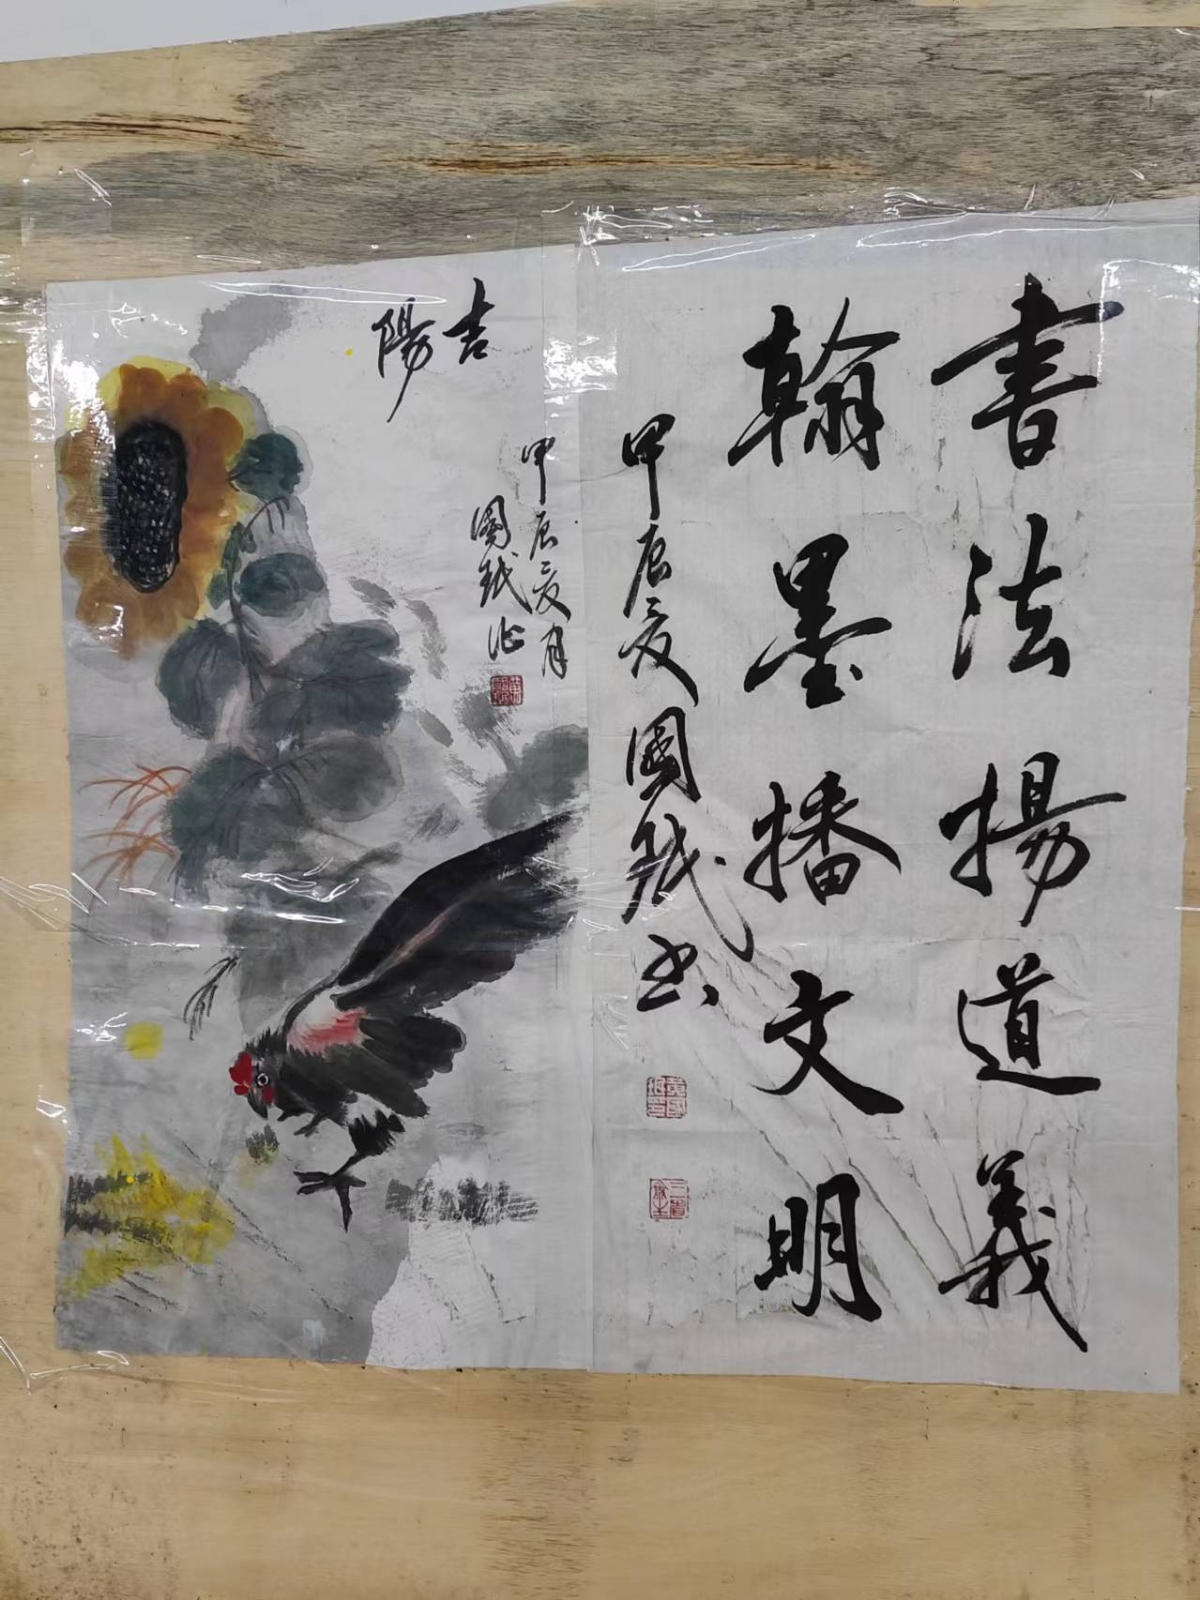 書法揚道義
翰墨播文明
甲辰之夏國斌书
吉
陽
甲辰之夏月
國斌作